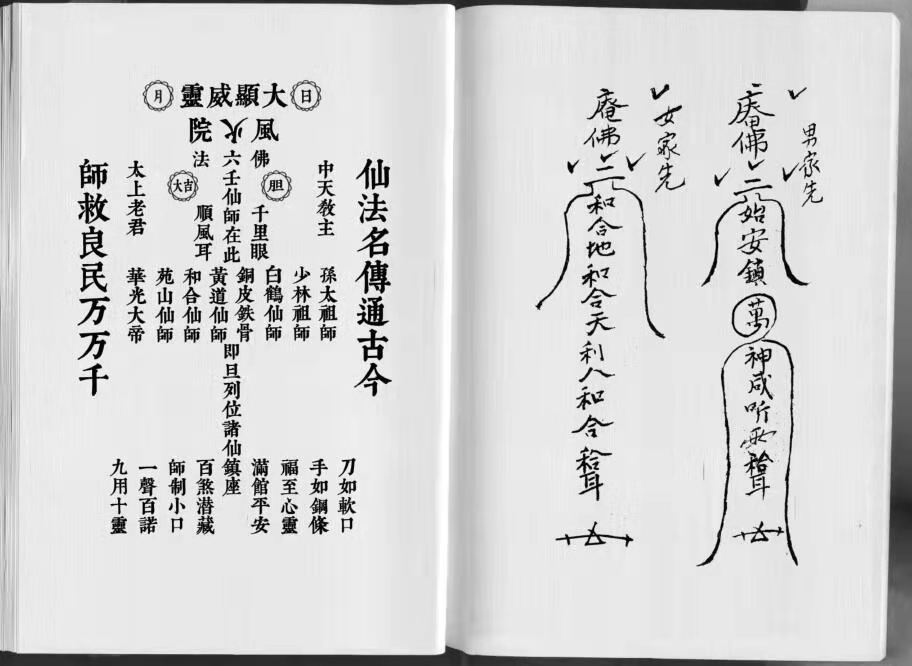 男家先
庵佛
二
始安鎮
萬
神咸听
女家先
庵佛
二
和合地和合天利人和合
日
大顯威靈
月
風火院
仙法名傳通古今
中天教主
佛
胆
千里眼
六壬仙師在此
法
大吉
順風耳
太上老君
孫太祖師
少林祖師
白鶴仙師
銅皮鉄骨
即旦列位諸仙鎮座
黃道仙師
和合仙師
苑山仙師
華光大帝
刀如軟口
手如鋼條
福至心靈
滿館平安
百煞潜藏
師制小口
一聲百諾
九用十靈
師救良民万万千